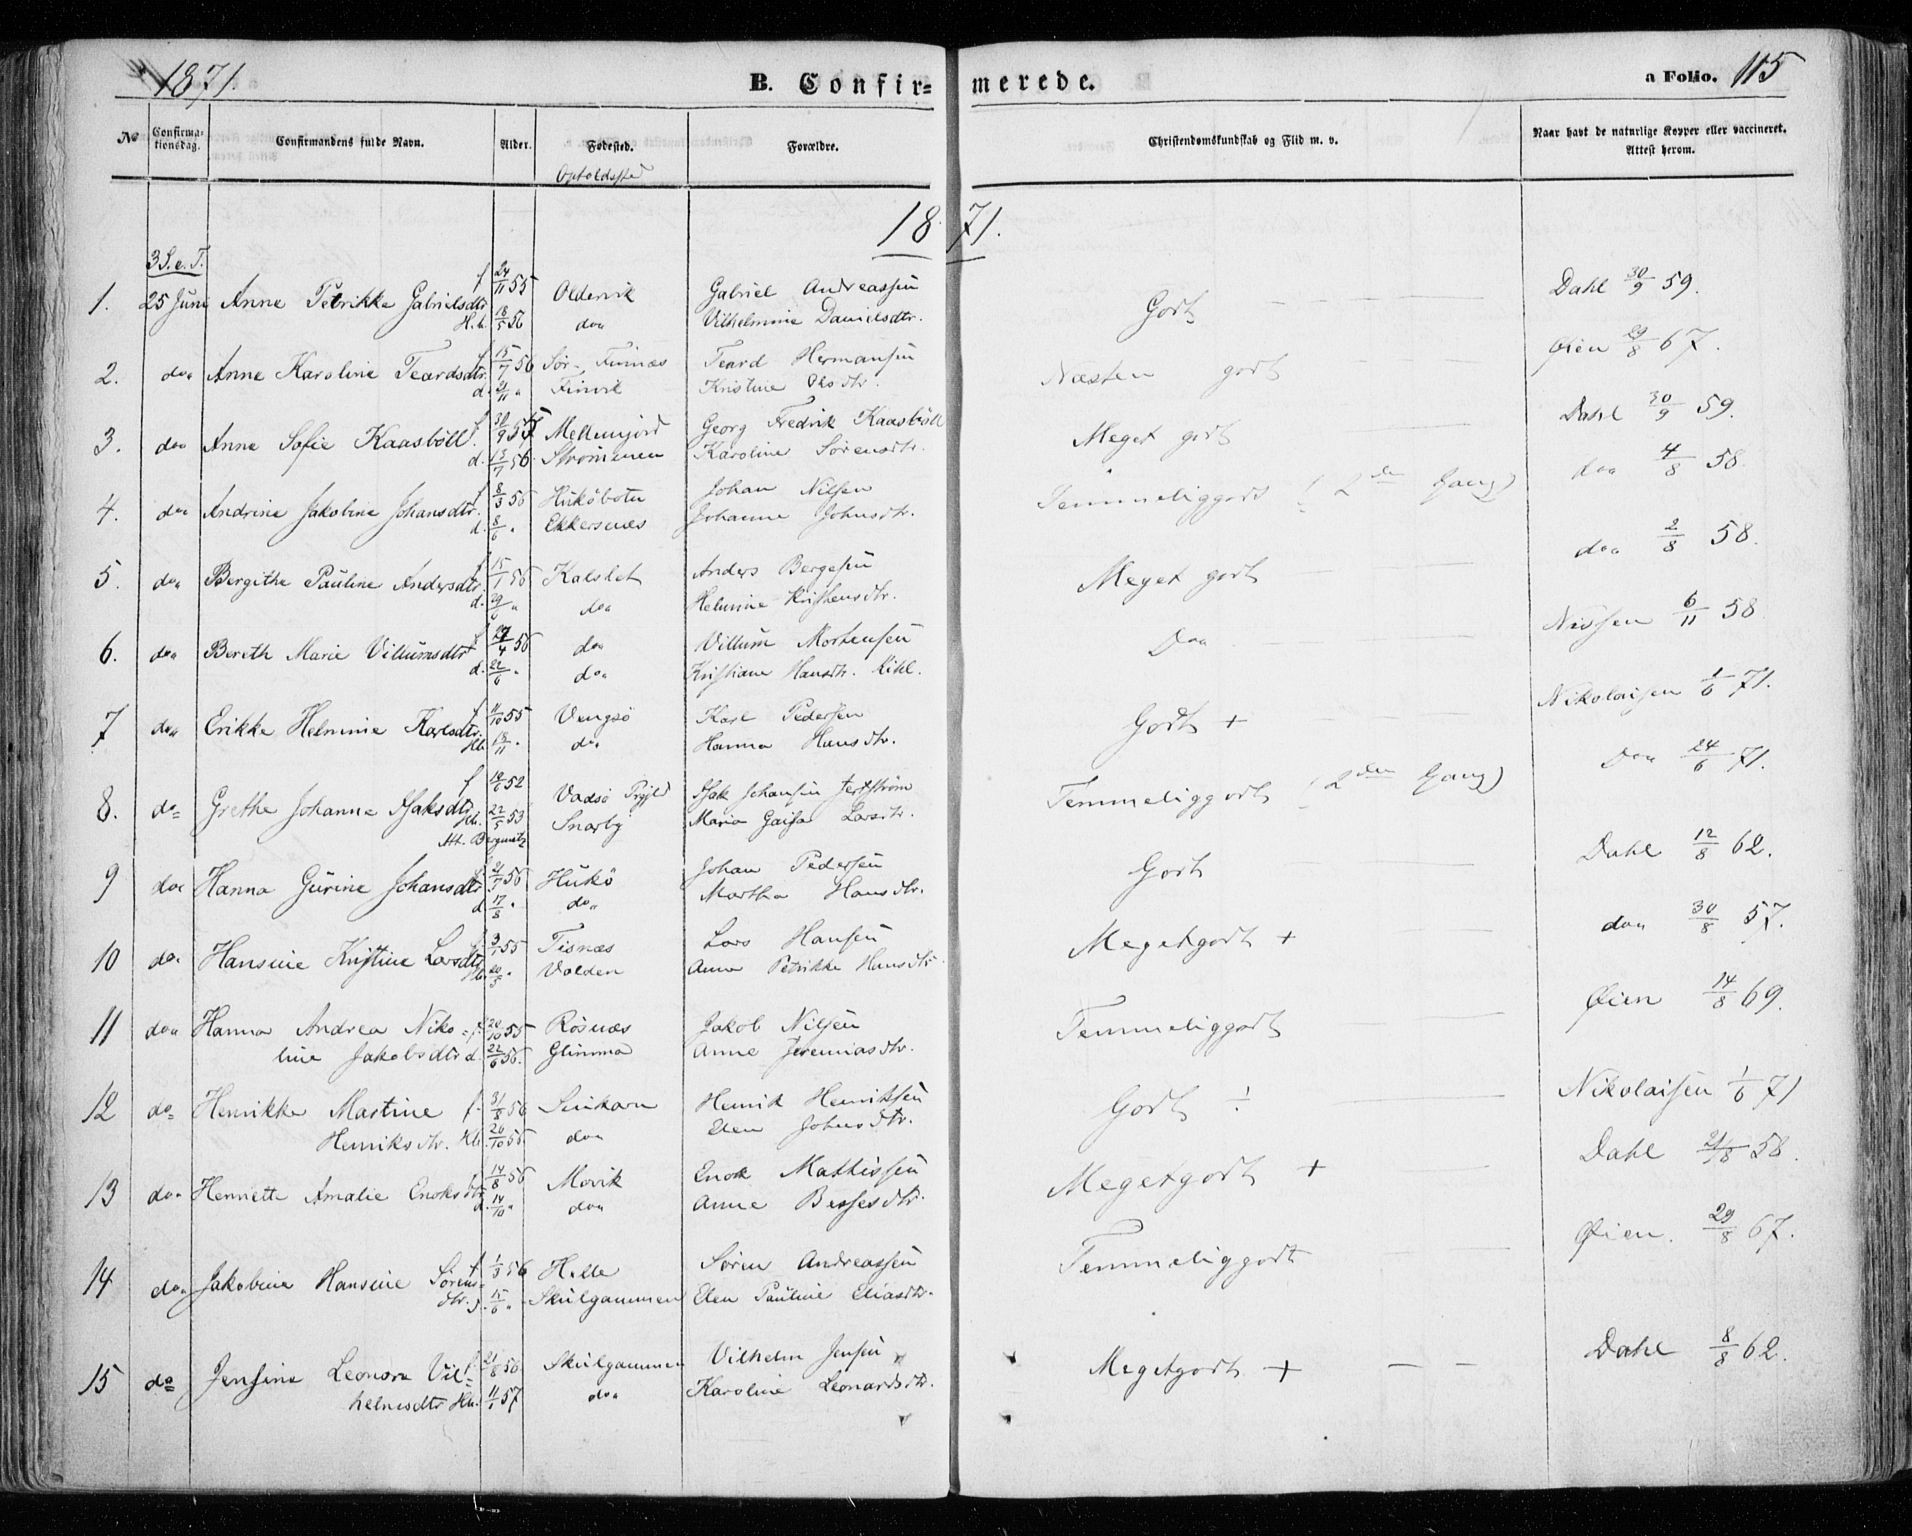 1871.
B. Confir=
merede.
a Folio. 115
No
Confirma-
tionsdag.
Confirmandens fulde Navn.
Alder.
Fødested.
Opholdssted
Forældre.
Christendomskundskab og Flid m. v.
Naar havt de naturlige Kopper eller vaccineret.
Attest herom.
1871.
3 S. e. T.
1. 25 Juni Anne Petrikke Gabrielsdtr f. 24/11 55 Oldervik Gabriel Andreassen Godt Dahl 30/9 59.
H.b. 18/5 56 do" Vilhelmine Danielsdtr.
2. do" Anne Karoline Teardsdtr. f. 15/7 56 Sør-Finnæs Teard Hermansen Næsten godt Øien 29/8 67.
d. 2/11 " Finvik Kristine Olsdtr.
3. do" Anne Sofie Kaasböll f. 30/9 55 Mellemjord Georg Fredrik Kaasböll Meget godt Dahl 30/9 59.
d. 13/7 56. Strømmen Karoline Sørensdtr.
4. do" Andrine Jakobine Johansdtr. f. 8/3 56 Hukøbotn Johan Nilsen Temmeliggodt (2den Gang) do" 4/8 58.
d. 8/6 " Ekkersnæs Johanne Johnsdtr.
5. do" Bergithe Pauline Andersdtr. f. 15/1 56 Kalslet Anders Bergesen Meget godt do" 2/8 58.
d. 29/6 " do" Helmine Kristensdtr.
6. do" Bereth Marie Villumsdtr f. 27/4 56 do" Villum Mortensen Do" Nissen 6/11 58
d. 22/6 " do" Kristiane Hansdtr. Kihl.
7 do" Erikke Helmine Karlsdtr. f. 11/10 55 Vengsö Karl Pedersen Godt + Nikolaisen 1/6 71.
Hb. 18/11 " do" Hanna Hansdtr.
8. do= Grethe Johanne Isaksdtr f. 10/6 52 Vadsø Prgjld Isak Johansen Jertström Temmeliggodt (2den Gang) Do" 24/6 71.
Hb. 22/5 53 Snarby Maria Gaisa Larsdtr.
Att. Bergwitz
9 do" Hanna Gurine Johansdtr f. 2/7 56 Hukö Johan Pedersen Godt Dahl 12/8 62.
d. 17/8 " do" Martha Hansdtr.
10 do" Hansine Kristine Larsdtr f. 3/1 55 Tisnæs Lars Hansen Megetgodt + do" 30/8 57.
Hb. 20/5 " Valden Anna Petrikke Hansdtr
11 do" Hanna Andrea Niko= f. 20/10 55 Rösnæs Jakob Nilsen Temmeliggodt Øien 14/8 69.
line Jakobsdtr d. 22/6 56. Glimma Anne Jeremiasdtr.
12 do= Henrikke Martine f. 31/8 56 Senkavn Henrik Henriksen Godt ÷ Nikolaisen 1/6 71
Henriksdtr. Hb. 20/10 56. do" Elen Johnsdtr.
13 do" Hennette Amalie Enoksdtr f. 14/8 56 Movik Enok Mathissen Megetgodt + Dahl 21/8 58.
d. 14/10 " do" Anne Bessesdtr.
14 do" Jakobine Hansine Sørens= f. 1/3 56 Helle Søren Andreassen Temmeliggodt Øien. 29/8 67.
dtr. d. 15/6 " Skulgammen Elen Pauline Eliasdtr.
15 do= Jensine Leonora Vil= f. 21/8 56 Skulgammen Vilhelm Jensen Megetgodt + Dahl 8/8 62.
helmsdtr Hb. 11/1 57 do" Karoline Leonardsdtr.